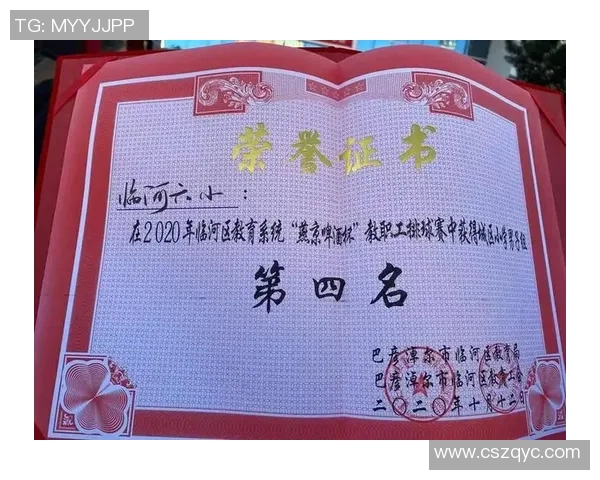 TG: MYYJJPP
荣誉证书
临河六小：
在2020年临河区教育系统“燕京啤酒杯”教职工排球赛中获得城区小学男子组
第四名
巴彦淖尔市临河区教育局
巴彦淖尔市临河区教育工会
二〇二〇年十月十二日
www.cszqyc.com